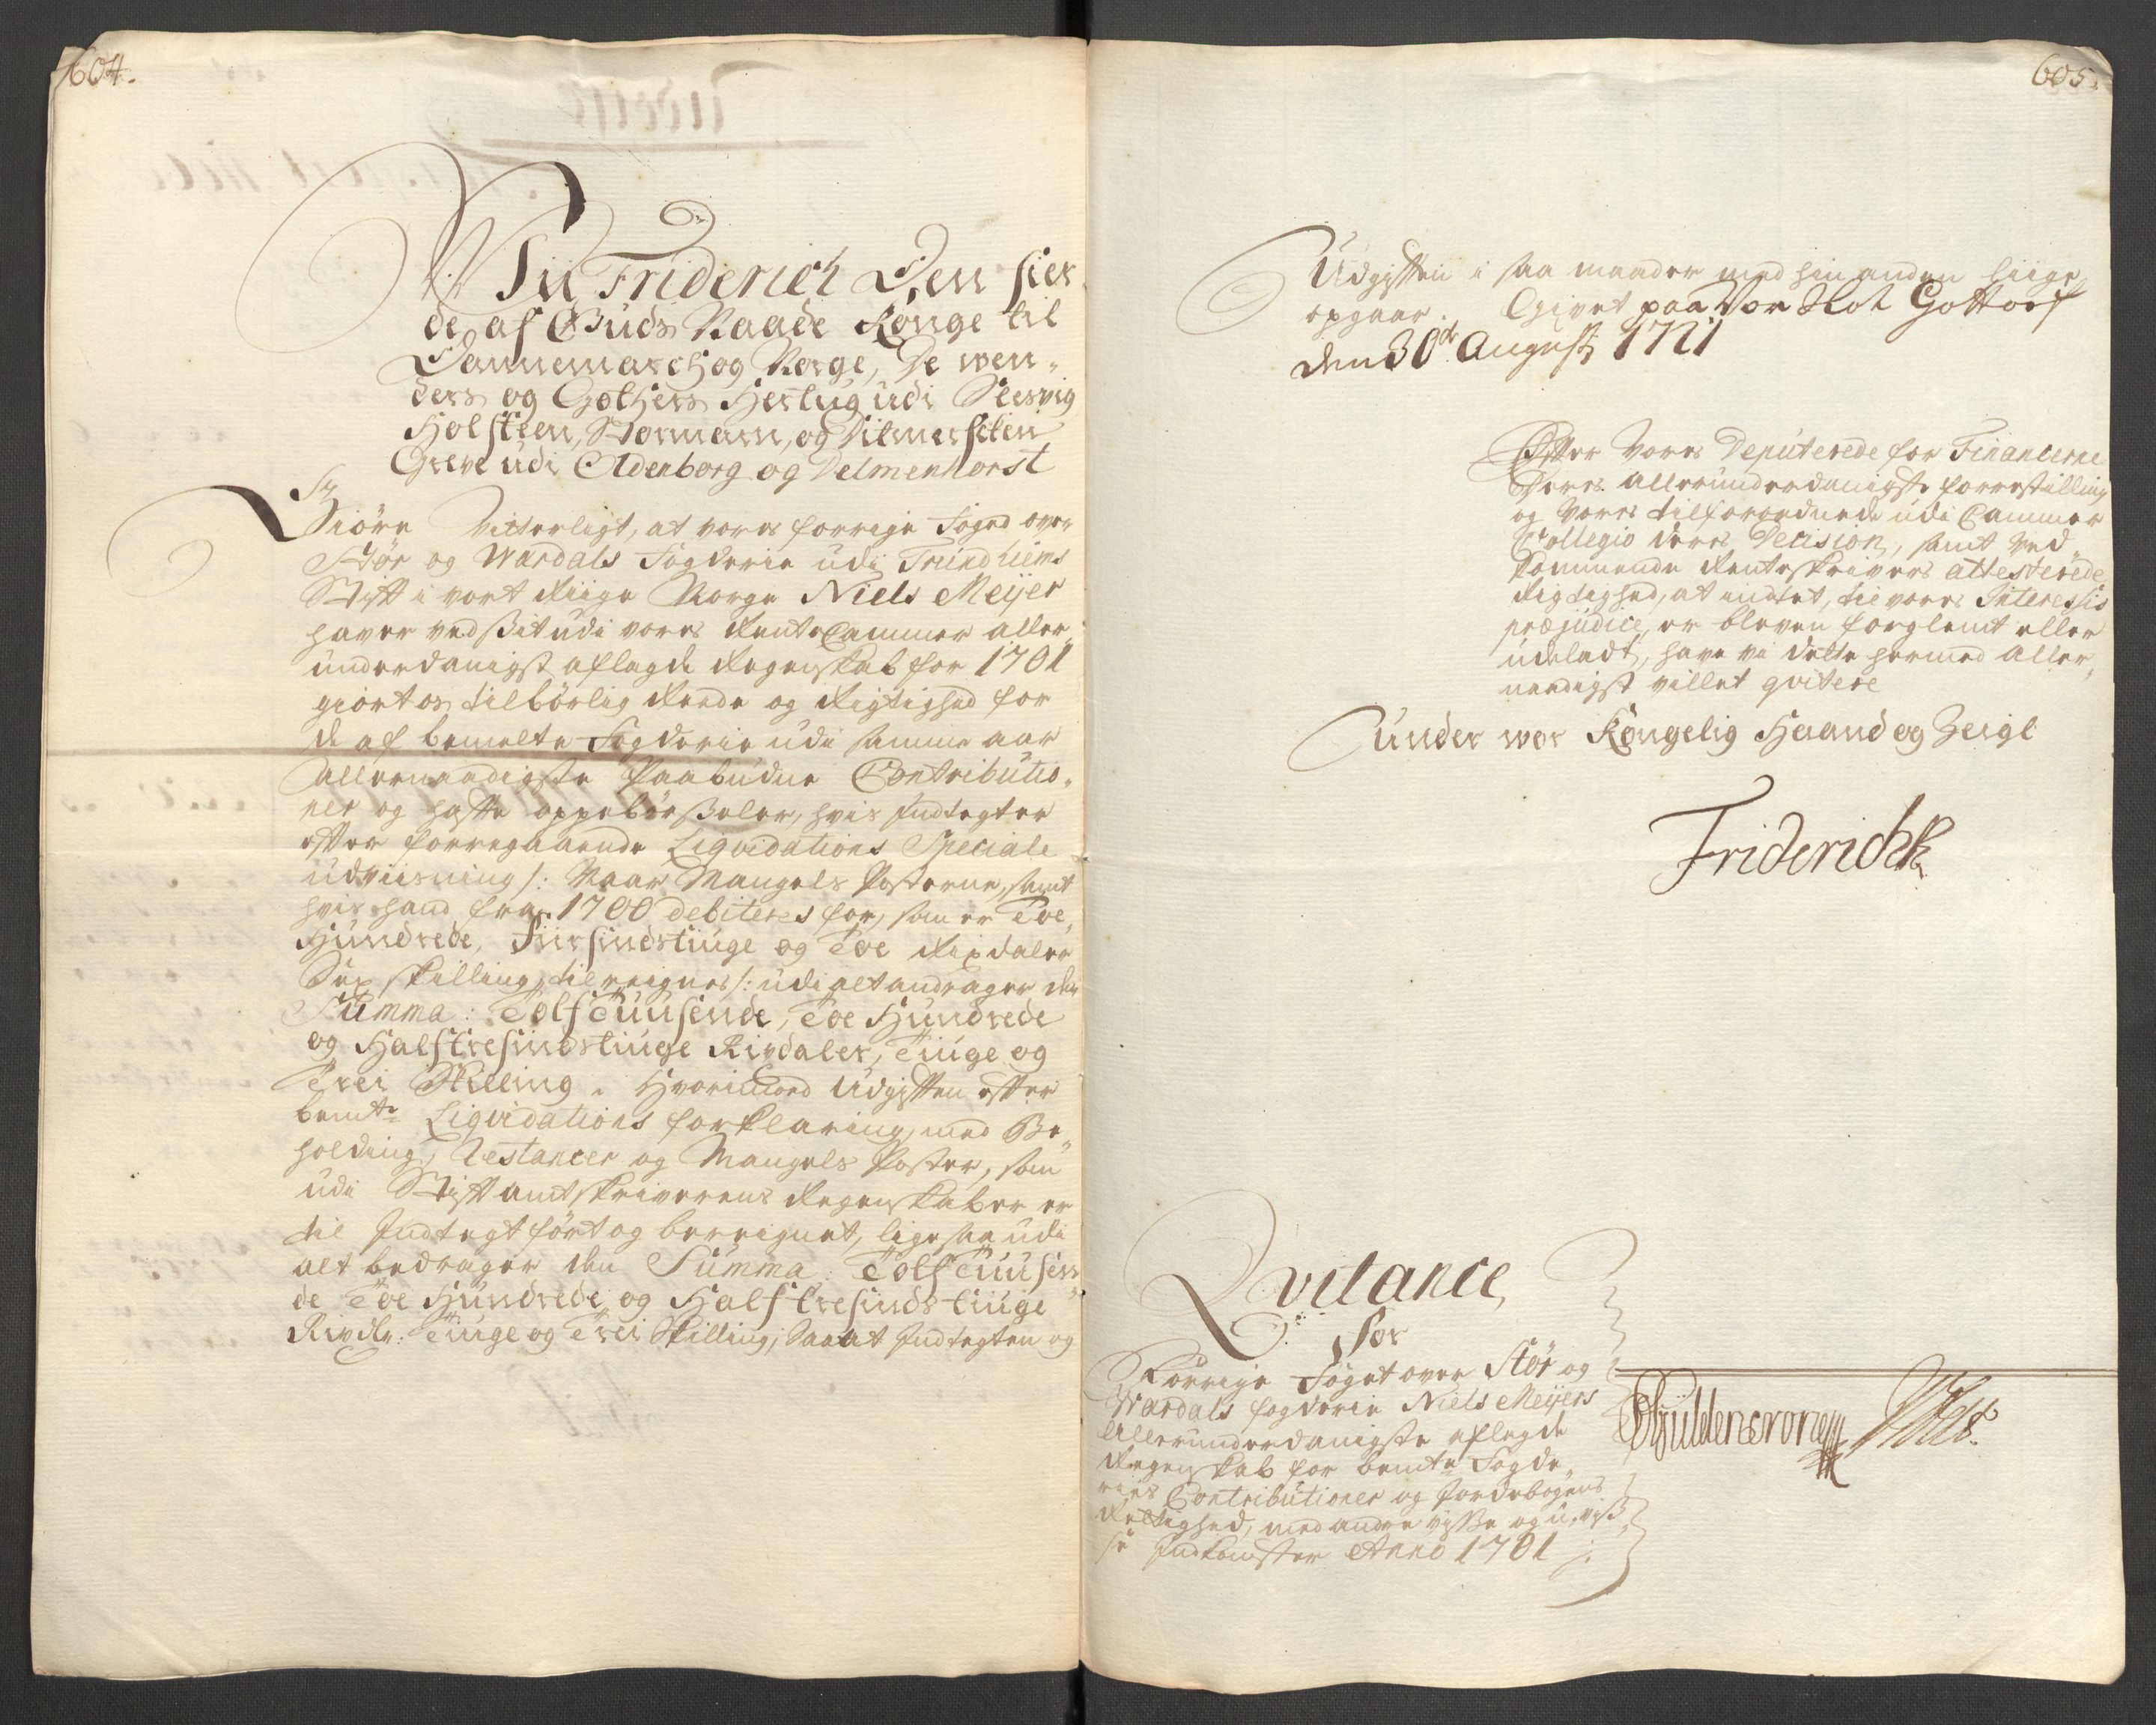 604.
Wii Friderich Den fier
de, af Guds Naade Konge til
Dannemarch og Norge, De wen-
ders og Gothers Hertug udi Slesvig
Holsteen, Stormarn, og Ditmersken
Greve udi Oldenborg og Delmenhorst
Giöre Vitterligt, at vores forrige Foged over
Stör og Wardals Fogderie udi Trundhiems
Stift i vort Riige Norge Niels Meÿer
haver ved sit udi vores Rente Cammer aller-
underdanigst aflagde Regenskab for 1701
giort os tilbörlig Reede og Rigtighed for
de af bemelte Fogderie udi samme aar
allernaadigste Paabudne Contributio-
ner og hafte oppebörsseler, hvis Indtegter
efter forregaaende Liqvidations Speciale
udviisning /: Naar Mangels Posterne, samt
hvis hand fra 1700 debiteres for, som er Toe
Hundrede, Fiirsindstiuge og Toe Rixdaler
Sex skilling, tilreignes :/ udi alt andrager den
Summa: Tolf Tuusende, Toe Hundrede
og Halftresindstiuge Rixdaler, Tiuge og
Trei Skilling. Hvorimod Udgiften efter
bemte Liqvidations forklaring, med Be-
holding, Restancer og Mangels Poster, som
udi Stiftamtskriverens Regenskaber er
til Indtegt fört og bereignet, ligesaa udi
alt bedrager den Summa: Tolf Tuusen-
de Toe Hundrede og Halftresindstiuge
Rixdlr: Tiuge og Trei Skilling, Saa at Indtegten og
605.
Udgiften i saa maader med hin anden liige
opgaar. Givet paa Vor Slot Gottorf
den 30te August 1721
Efter Vores Deputerede for Financerne
Deres allerunderdanigste forrestilling
og Vores tilforordnede udi Cammer
Collegio deres Decision, samt Ved
kommende Renteskrivers attesterede
Rigtighed, at indtet, til vores Interessis
præjudice, er bleven forglemt eller
udeladt, have vi dette hermed aller-
naadigst villet qvitere
under wor Kongelig Haand og Zeigl
Friderich R
Qvitance
for
Forrige Foget over Stör og
Wardals fogderie Niels Meÿers
Allerunderdanigste aflagde
Regenskab for bemte Fogde-
ries Contributioner og Jordebogens
Rettighed, med andre visse og u-vis-
se Indkomster Anno 1701
Gyldencrone